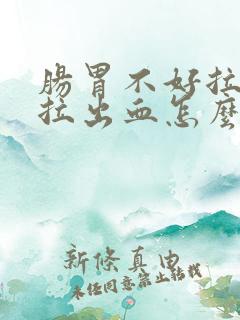 腸胃不好拉
拉出血怎麼
新條真由
未經同意禁止轉載